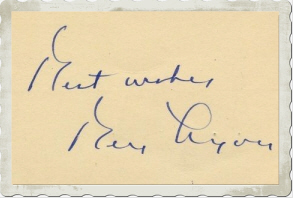 Best wishes
Ben Lyon